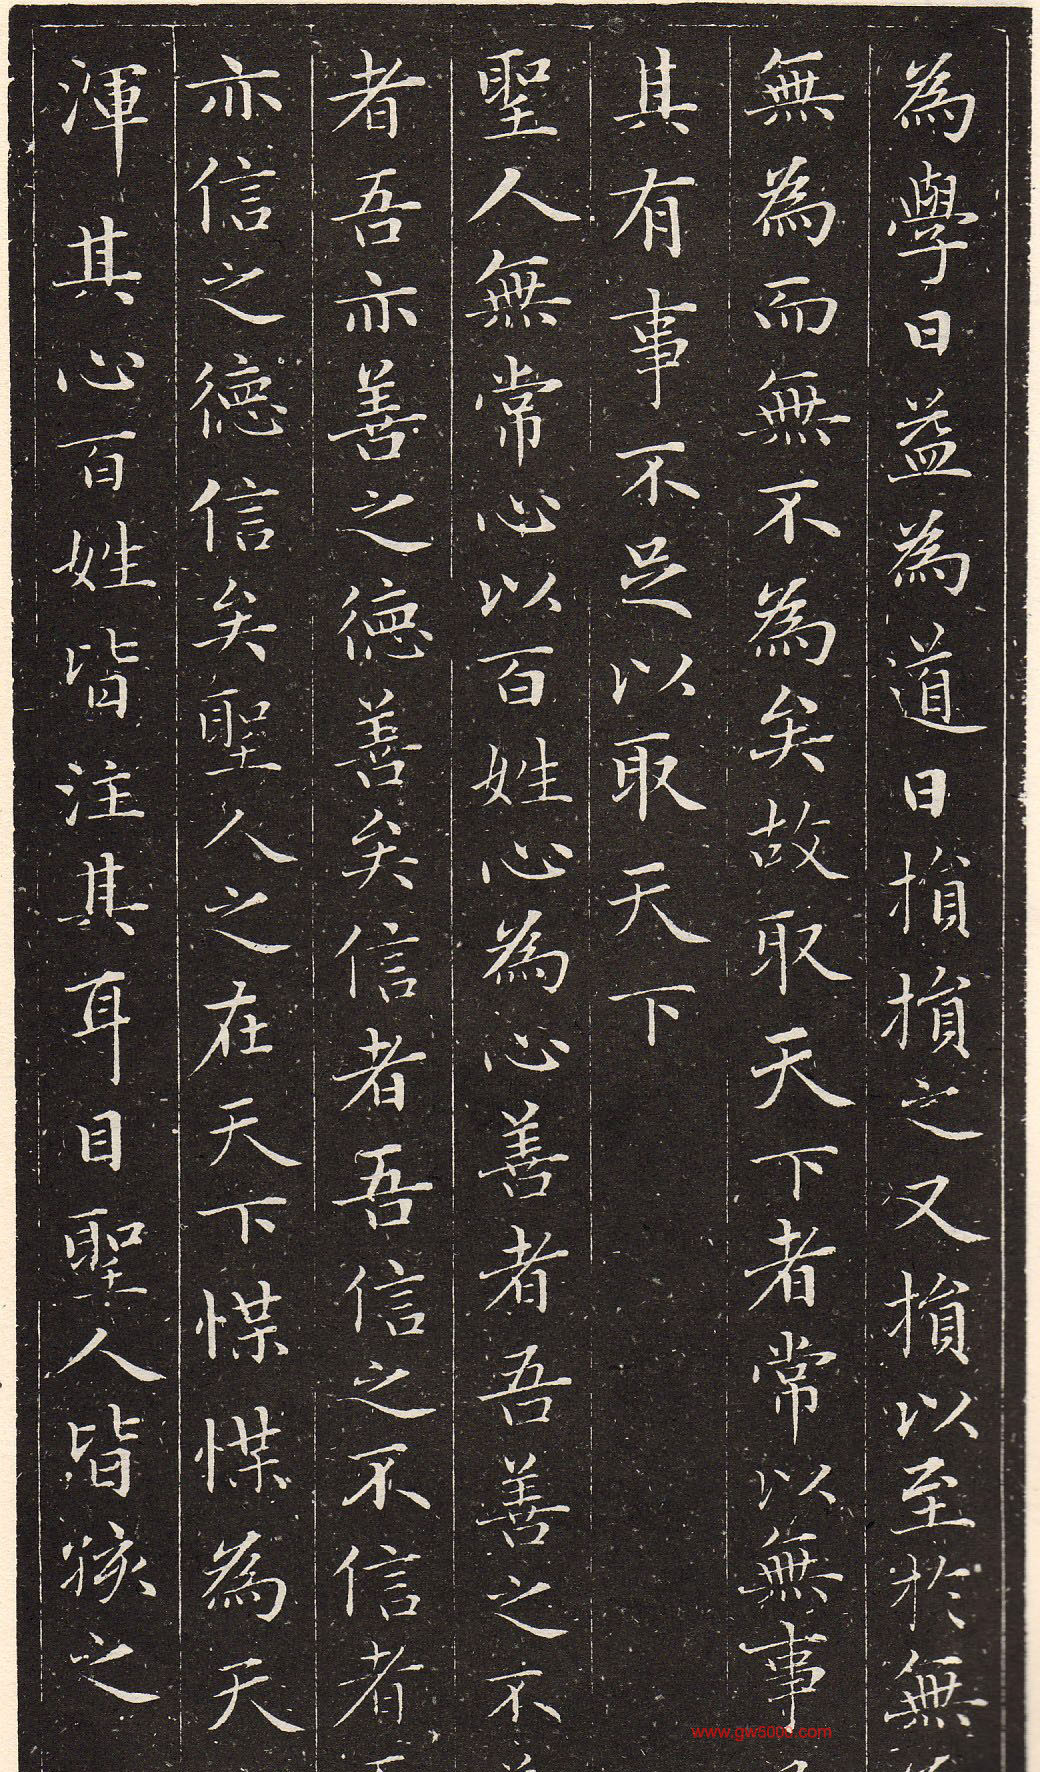 為學日益為道日損損之又損以至於無
無為而無不為矣故取天下者常以無事
其有事不足以取天下
聖人無常心以百姓心為心善者吾善之不
者吾亦善之德善矣信者吾信之不信者
亦信之德信矣聖人之在天下惵惵為天
渾其心百姓皆注其耳目聖人皆孩之
www.gw5000.com